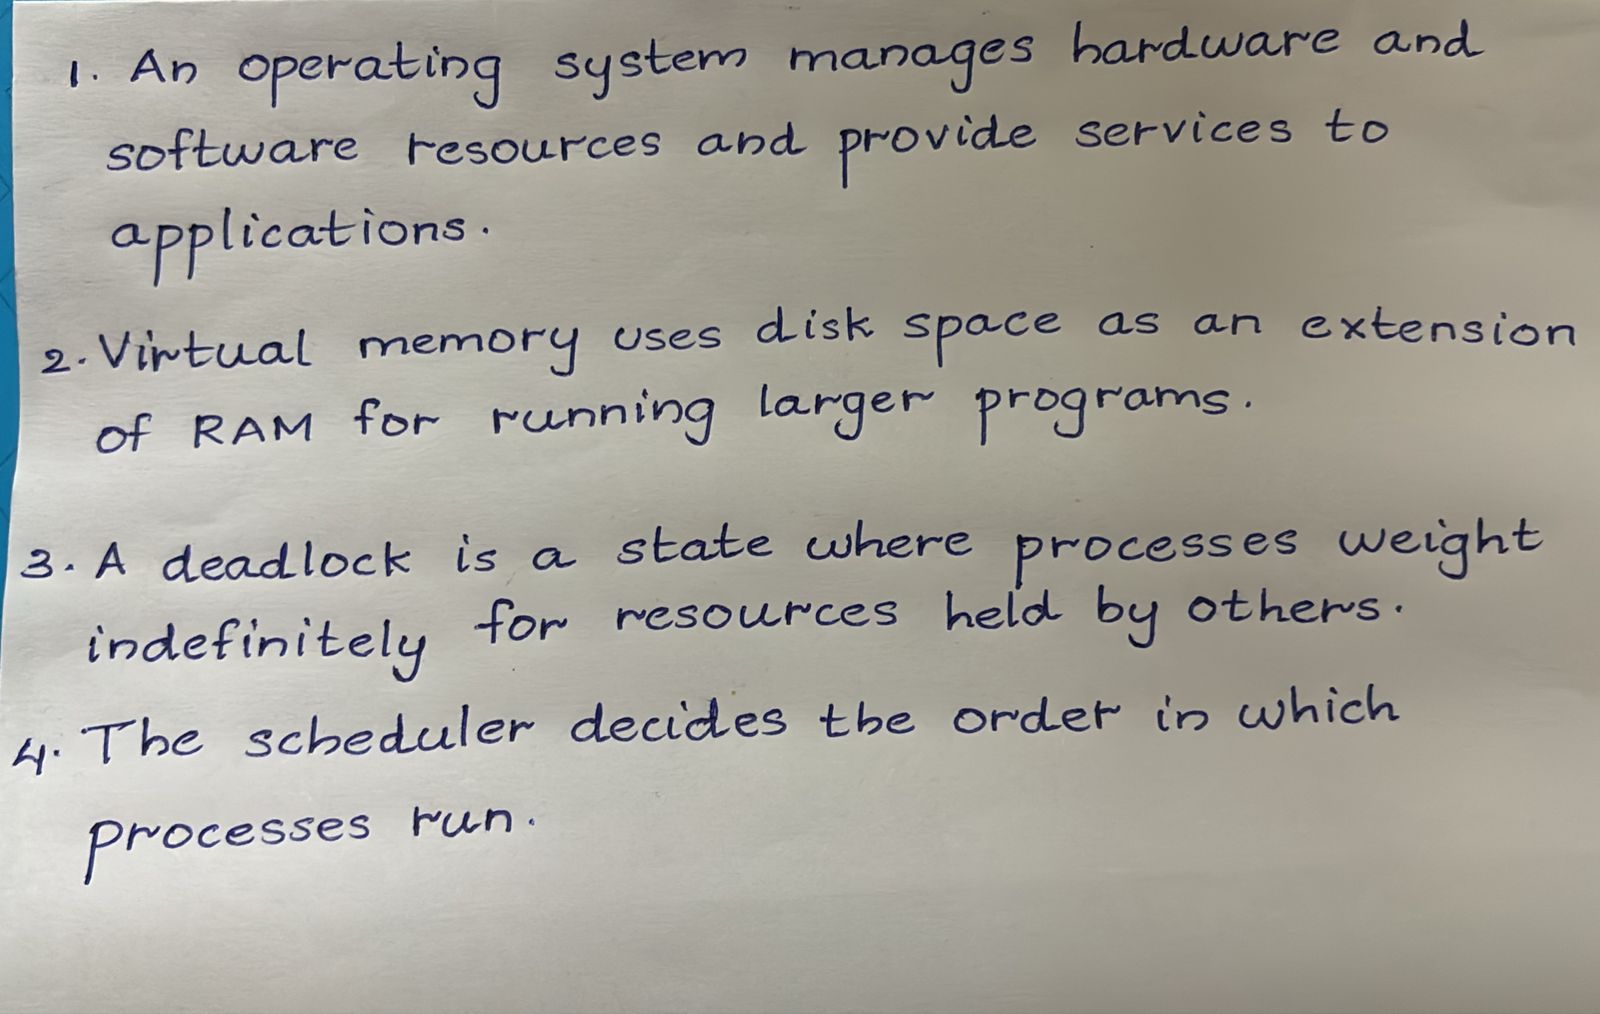 1. An operating system manages hardware and
software resources and provide services to
applications.
2. Virtual memory uses disk space as an extension
of RAM for running larger programs.
3. A deadlock is a state where processes weight
indefinitely for resources held by others.
4. The scheduler decides the order in which
processes run.